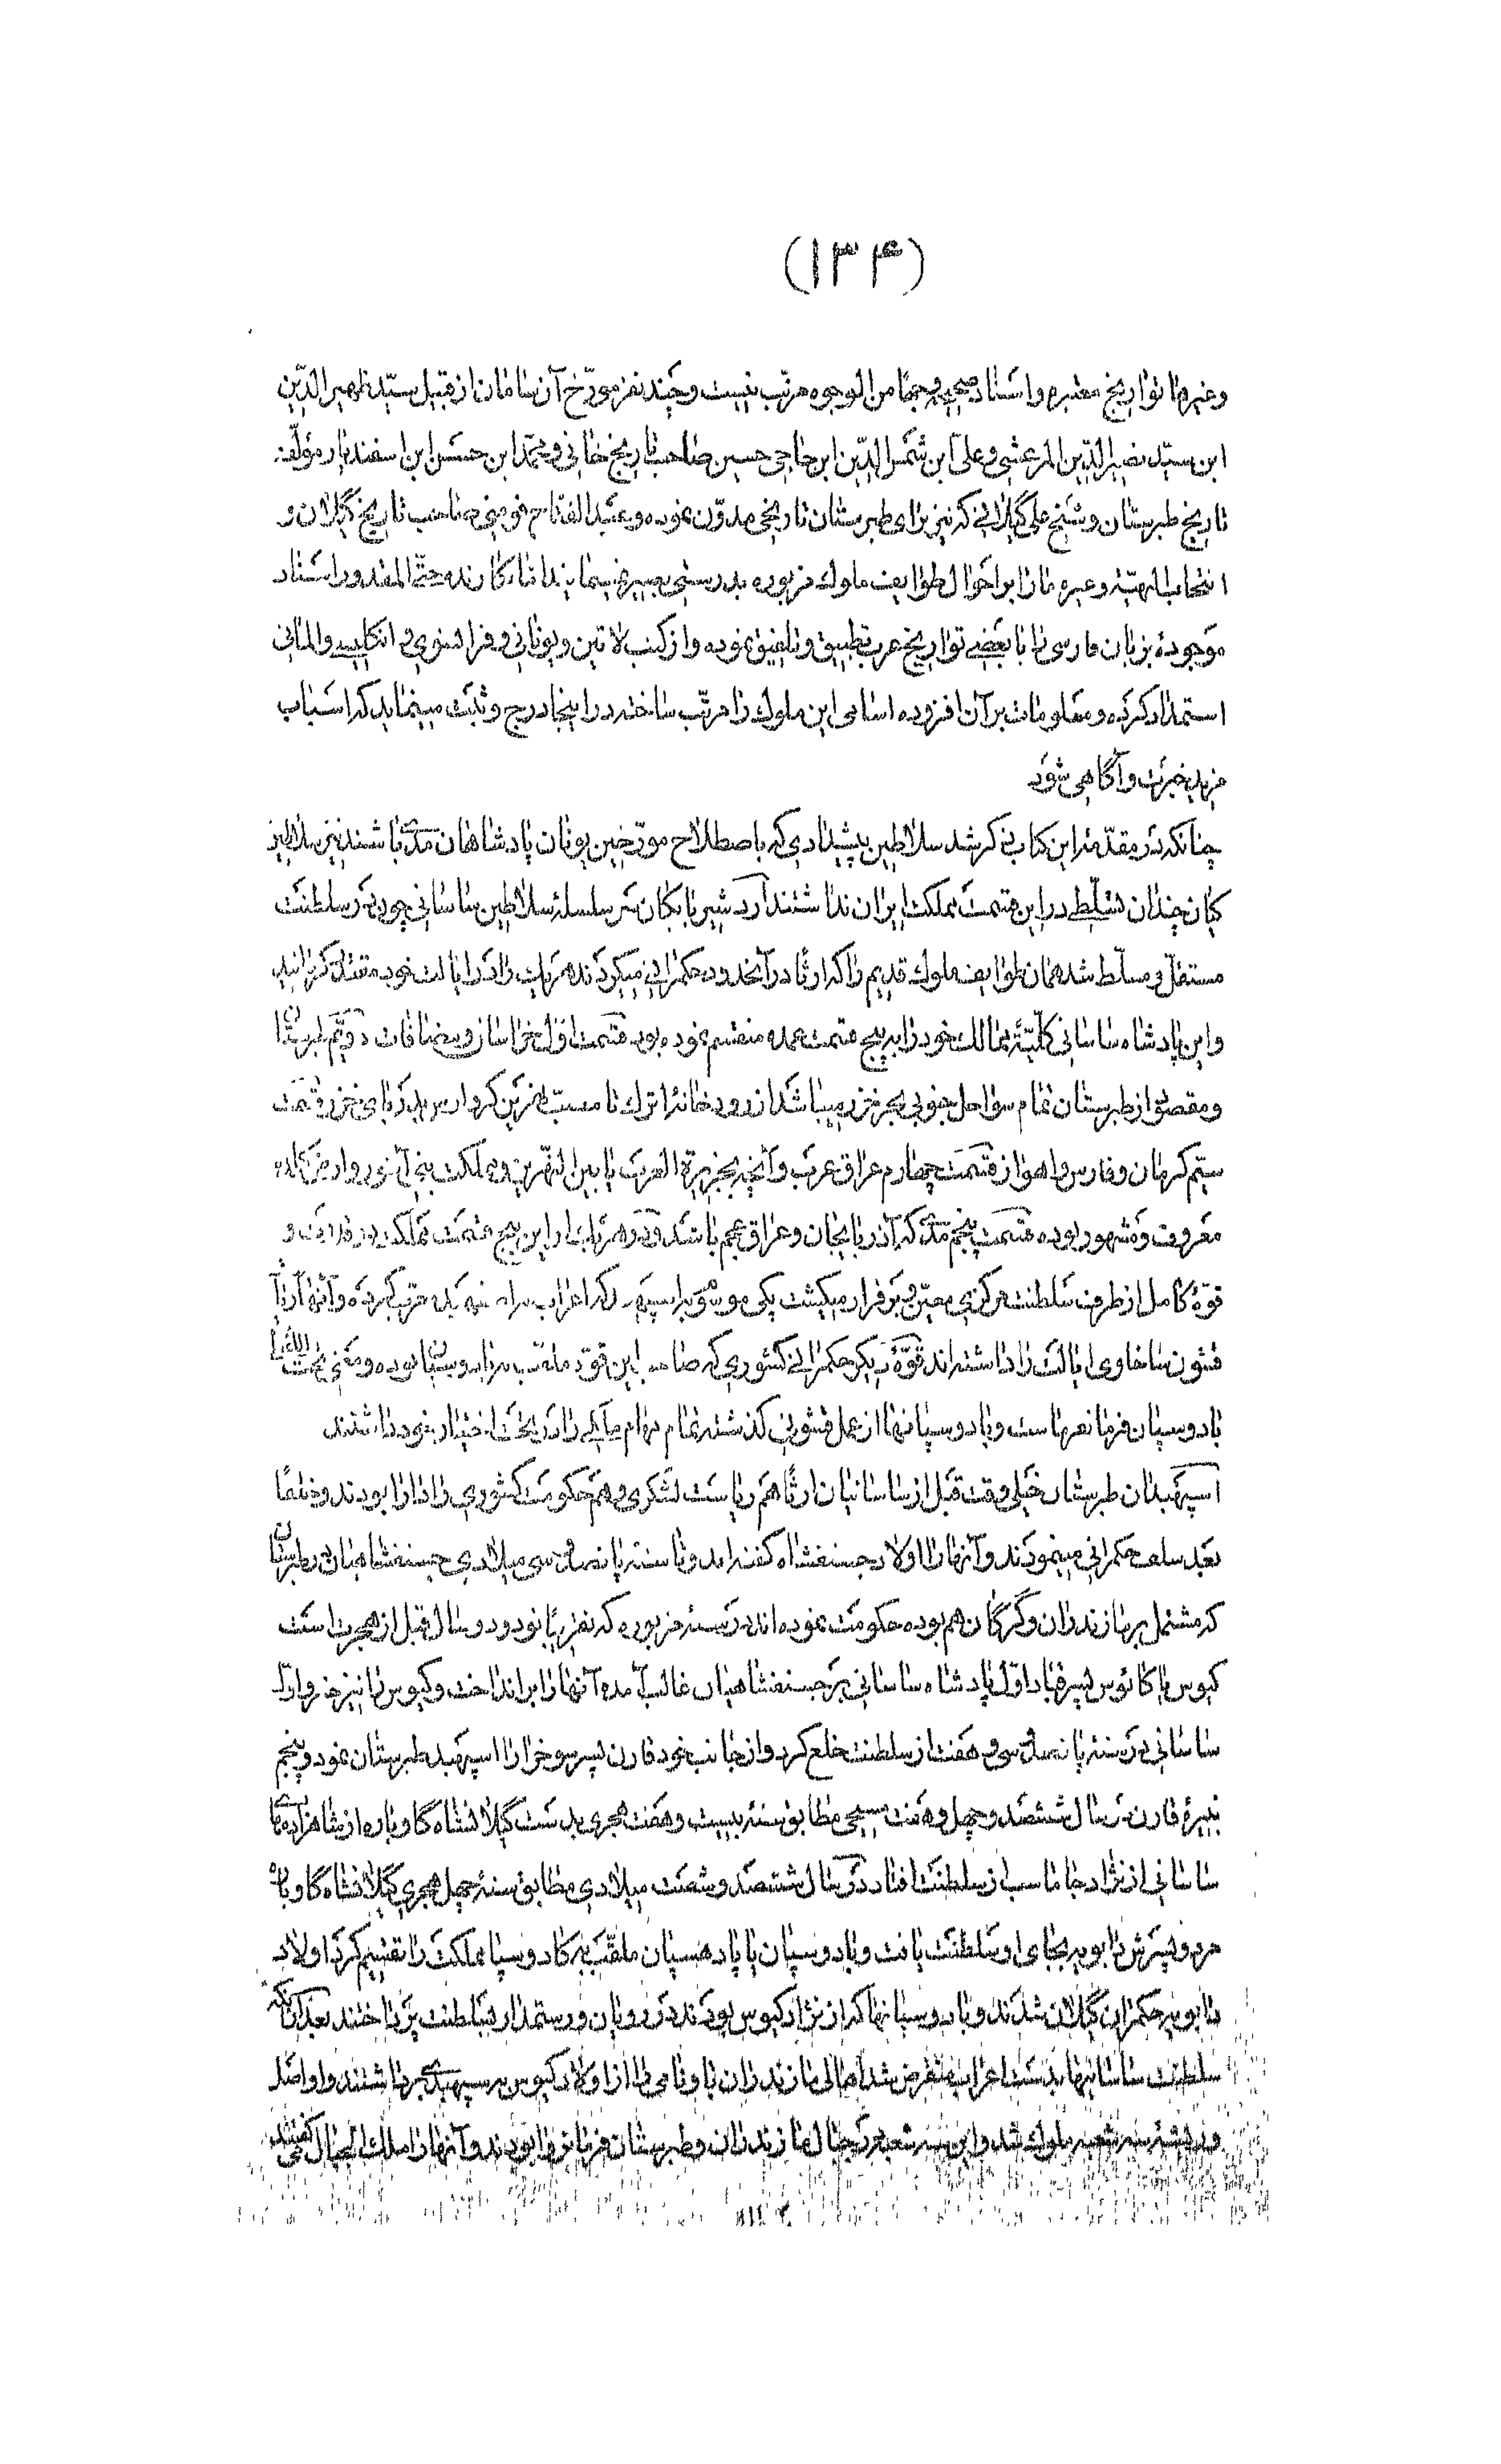 (۱۳۴)
وغیرها تواریخ معتبره واسناد صحیحه وجهًا من الوجوه مرتّب نیست وچند نفر مورّخ آن سامان از قبیل سیّد ظهیر الدّین
ابن سیّد نصیر الدّین المرعشی وعلی ابن شمس الدّین ابن حاجی حسین صاحب تاریخ خانی ومحمّد ابن حسن ابن اسفندیار مؤلّف
تاریخ طبرستان وشیخ علی گیلانی که نیز برای طبرستان تاریخی مدوّن نموده وعبد الفتّاح فومنی صاحب تاریخ گیلان و
انتخاب البهیّه وغیره ما را بر احوال طوایف ملوک مزبوره بدرستی بصیر نمینمایند نگارنده حتّی المقدور اسناد
موجودهٔ بزبان فارسی را با بعضی تواریخ عرب تطبیق وتلفیق نموده واز کتب لاتین ویونانی وفرانسوی وانگلیسی والمانی
استمداد کرده ومعلومات بر آن افزوده اسامی این ملوک را مرتّب ساخته در اینجا درج وثبت مینماید که اسباب
مزید خبرت وآگاهی شود
چنانکه در مقدّمهٔ این کتاب ذکر شد سلاطین پیشدادی که باصطلاح مورّخین یونان پادشاهان مدی باشند نیز سلاطین
کیان چندان تسلّطی در این قسمت مملکت ایران نداشتند اردشیر بابکان سر سلسلهٔ سلاطین ساسانی چون در سلطنت
مستقل ومسلّط شد همان طوایف ملوک قدیم را که ارثًا در آنحدود حکمرانی میکردند هر یک را در ایالت خود مقتدر گردانید
واین پادشاه ساسانی کلیّهٔ ممالک خود را به پنج قسمت عمده منقسم نموده بود قسمت اوّل خراسان ومضافات دویّم طبرستان
ومقصود از طبرستان تمام سواحل جنوبی بحر خزر میباشد از رودخانهٔ اترک تا مصبّ نهرین کر وارس بدریای خزر قسمت
سیّم کرمان وفارس واهواز قسمت چهارم عراق عرب وآنچه بجزیرة العرب یا بین النهرین ومملکت آثور وارض بابل
معروف ومشهور بوده قسمت پنجم مدی که آذربایجان وعراق عجم باشد ودر هر یک از این پنج قسمت مملکت دو فرمانفرما و
قوّهٔ کامل از طرف سلطنت مرکزی معیّن وبرقرار میگشت یکی موسوم به اسپهبد که اعراب اصفهبد معرّب کرده وآنها ریاست
قشون ساخلوی ایالت را داشته اند قوّهٔ دیگر حکمرانی کشوری که صاحب این قوّه ملقّب به پادوسپان بوده ومعنی تحت اللفظ
پادوسپان فرمانفرماست وپادوسپانها از عمل قشونی گذشته تمام مهام مملکت را در تحت اختیار خود داشتند
اسپهبدان طبرستان خیلی وقت قبل از ساسانیان ارثًا هم ریاست لشکری وهم حکومت کشوری را دارا بودند وخلفًا
بعد سلف حکمرانی مینمودند وآنها را اولاد جسنفشاه گفته اند وتا سنهٔ پانصد وسی میلادی جسنفشاهیان در طبرستان
که مشتمل بر مازندران وگرگان هم بوده حکومت نموده اند در سنهٔ مزبوره که تقریبًا نود ودو سال قبل از هجرت است
کیوس یا کائوس پسر قباد اوّل پادشاه ساسانی بر جسنفشاهیان غالب آمده آنها را برانداخت وکیوس را نیز خسرو اوّل
ساسانی در سنهٔ پانصد وسی وهفت از سلطنت خلع کرد واز جانب خود قارن پسر سوخرا را اسپهبد طبرستان نمود وپنجم
نبیرهٔ قارن در سال ششصد وچهل وهفت مسیحی مطابق سنهٔ بیست وهفت هجری بدست گیلانشاه گاوباره از شاهزاده‌های
ساسانی از نژاد جاماسب از سلطنت افتاد در سال ششصد وشصت میلادی مطابق سنهٔ چهل هجری گیلانشاه گاوباره
مرد وپسرش دابویه بجای او سلطنت یافت وپادوسپان یا پادهسپان ملقّب به کادوسپا مملکت را تقسیم کرد اولاد
دابویه حکمران گیلان شدند وپادوسپانها که از نژاد کیوس بودند در رویان ورستمدار بسلطنت پرداختند بعد از آنکه
سلطنت ساسانیها بدست اعراب منقرض شد اهالی مازندران باو نامی را از اولاد کیوس به سپهبدی برداشتند واو اصل
وریشهٔ سه شعبه ملوک شد واین سه شعبه در جبال مازندران وطبرستان فرمانروا بودند وآنها را ملک الجبال میگفتند